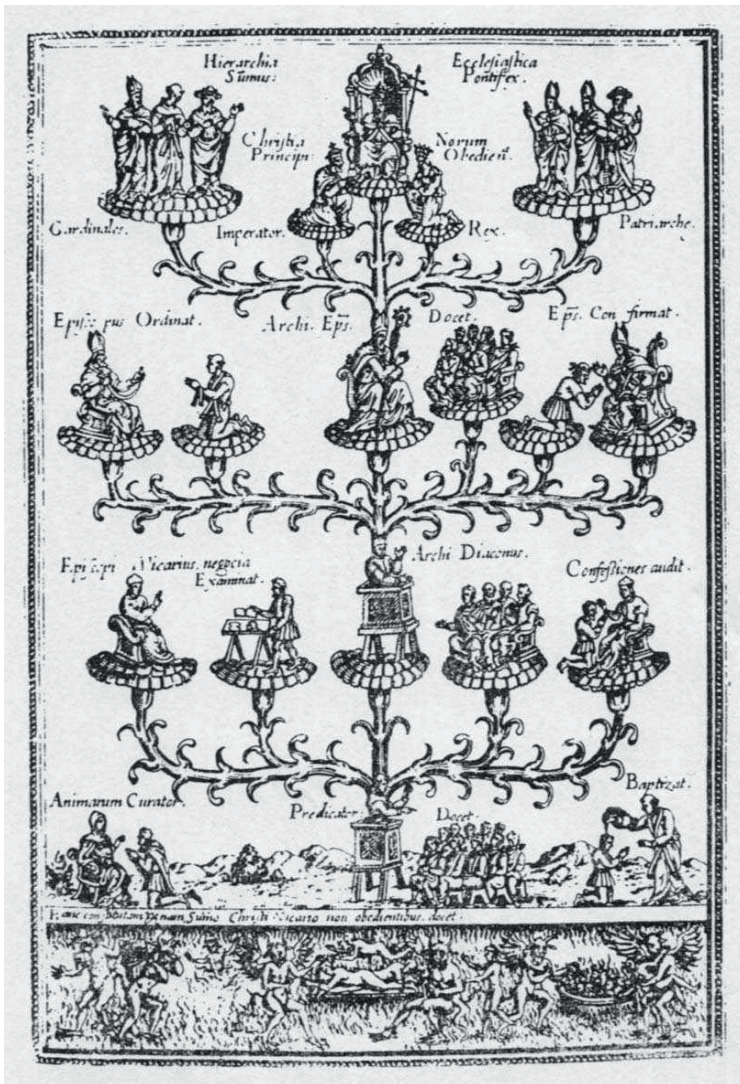 Hierarchia
Sum̃us:
Ecclesiastica
Pontifex.
Christia
Principi:
Norum
Obedien̄.
Cardinales.
Imperator.
Rex.
Patriarche.
Ordinat.
Archi. Ep̄s.
Docet.
Ep̄s. Con firmat.
Vicarius. negocia
Examinat.
Archi Diaconus.
Confessiones audit.
Animarum Curator.
Predicator.
Docet.
Baptizat.
penam Sumo Christi Vicario non obedientibus. docet.